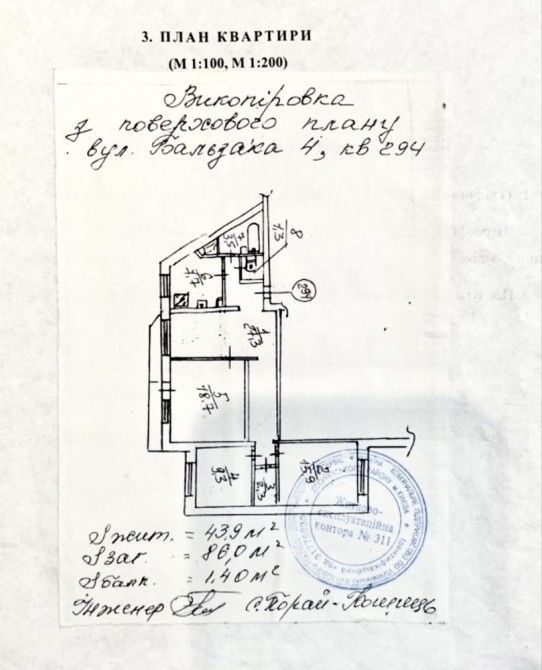 3. ПЛАН КВАРТИРИ
(М 1:100, М 1:200)
Викопіровка
з поверхового плану
вул. Бальзака 4, кв 294
8
1.3
7
3.5
6
7.7
294
1
27.3
5
18.7
4
9.3
3
2.3
2
15.9
Житлово-
експлуатаційна
контора № 311
S жит. = 43,9 м²
S заг. = 86,0 м²
S балк. = 1,40 м²
Інженер